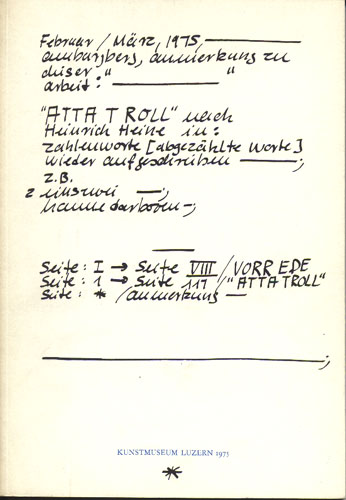 Februar / März, 1975 —
am burgberg, anmerkung zu
dieser: " "
arbeit: —
"ATTA TROLL" nach
Heinrich Heine in:
zahlenworte [abgezählte worte]
wieder aufgeschrieben —;
z.B.
2 eins zwei —;
hanne darboven —;
—
Seite: I → Seite VIII / VORREDE
Seite: 1 → Seite 117 / "ATTA TROLL"
Seite: * / anmerkung —
—;
KUNSTMUSEUM LUZERN 1975
*